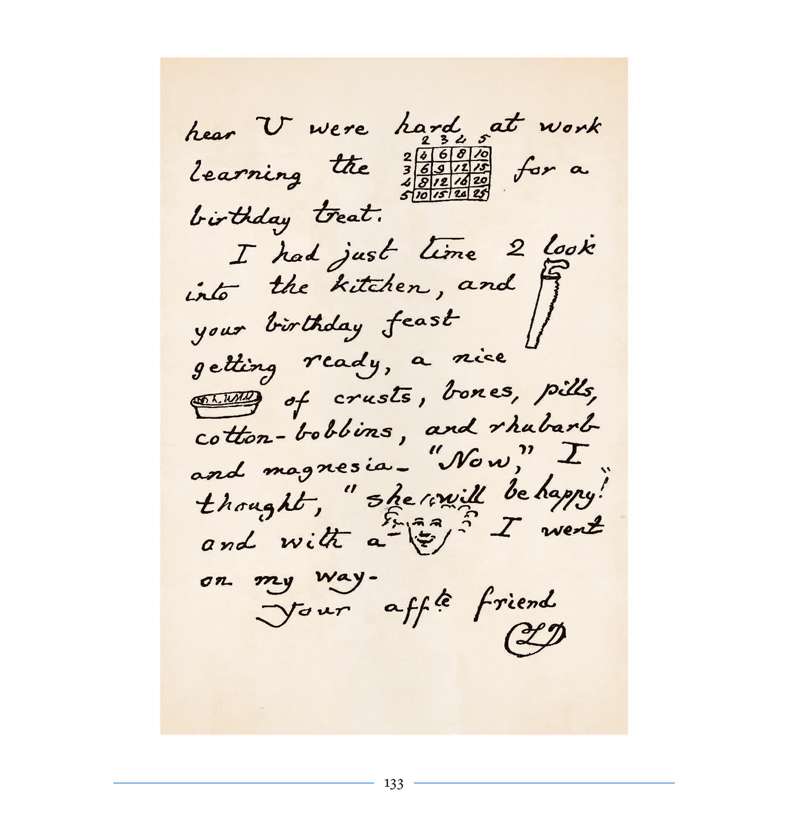 hear U were hard at work
2 3 4 5
2 4 6 8 10
3 6 9 12 15
4 8 12 16 20
5 10 15 20 25
learning the for a
birthday treat.
I had just time 2 look
into the kitchen, and
your birthday feast
getting ready, a nice
of crusts, bones, pills,
cotton-bobbins, and rhubarb
and magnesia- "Now," I
thought, "she will be happy!"
and with a I went
on my way-
Your aff^te friend
CLD
133